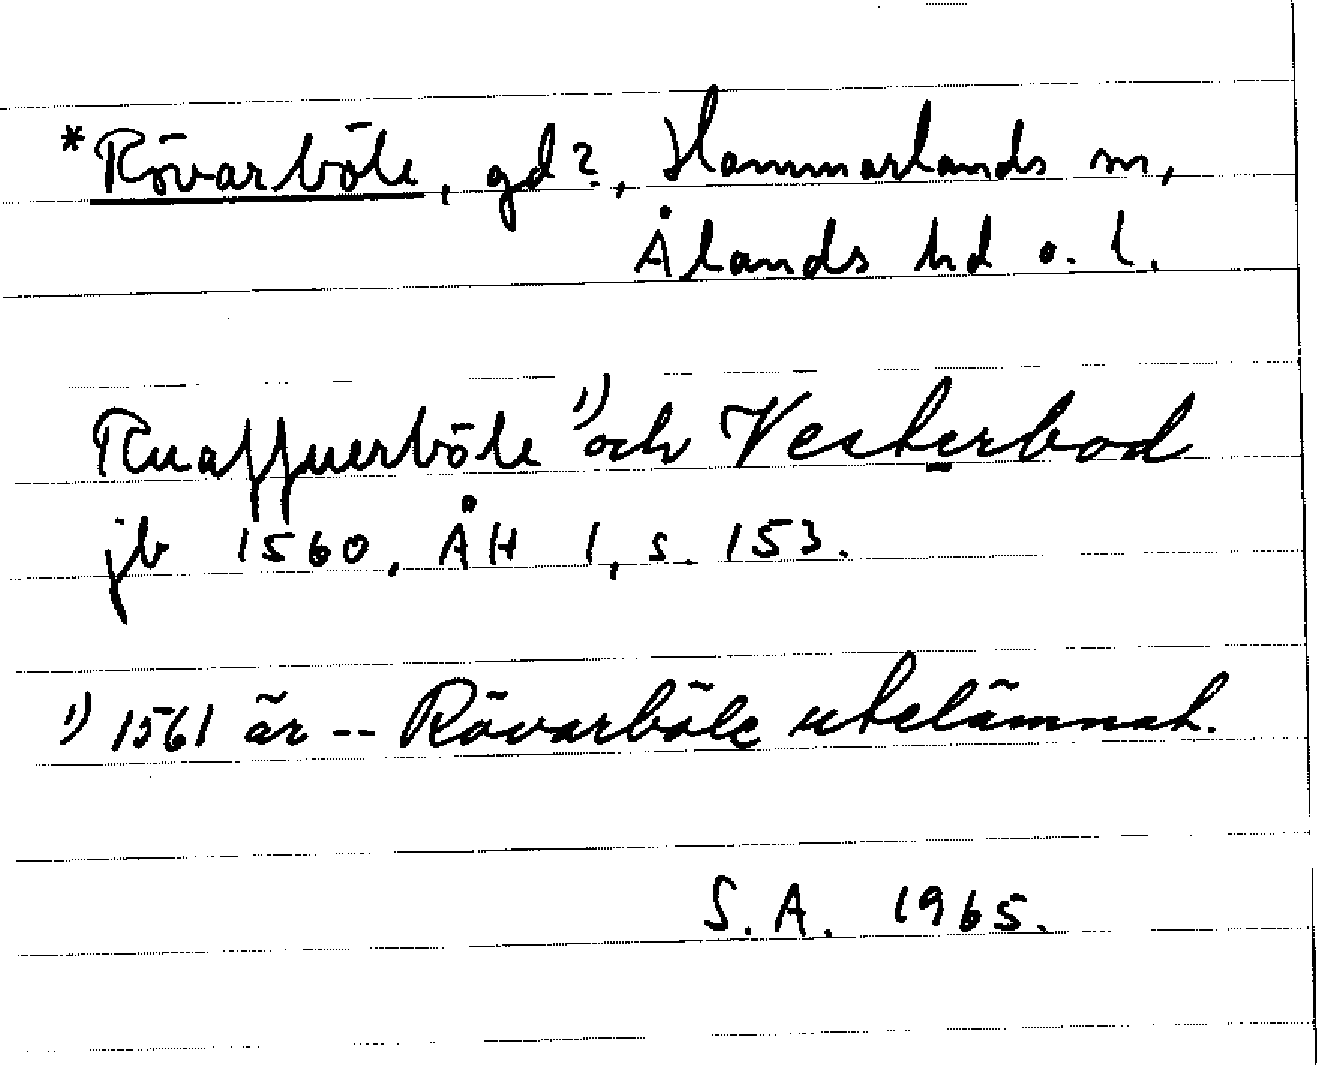 *Rövarböle, gd?, Hammarlands sn,
Ålands hd o. l.
Ruaffuerböle ¹⁾ och Vesterbod
jb 1560, ÅH 1, s. 153.
¹⁾ 1561 är -- Rövarböle utelämnat.
S.A. 1965.